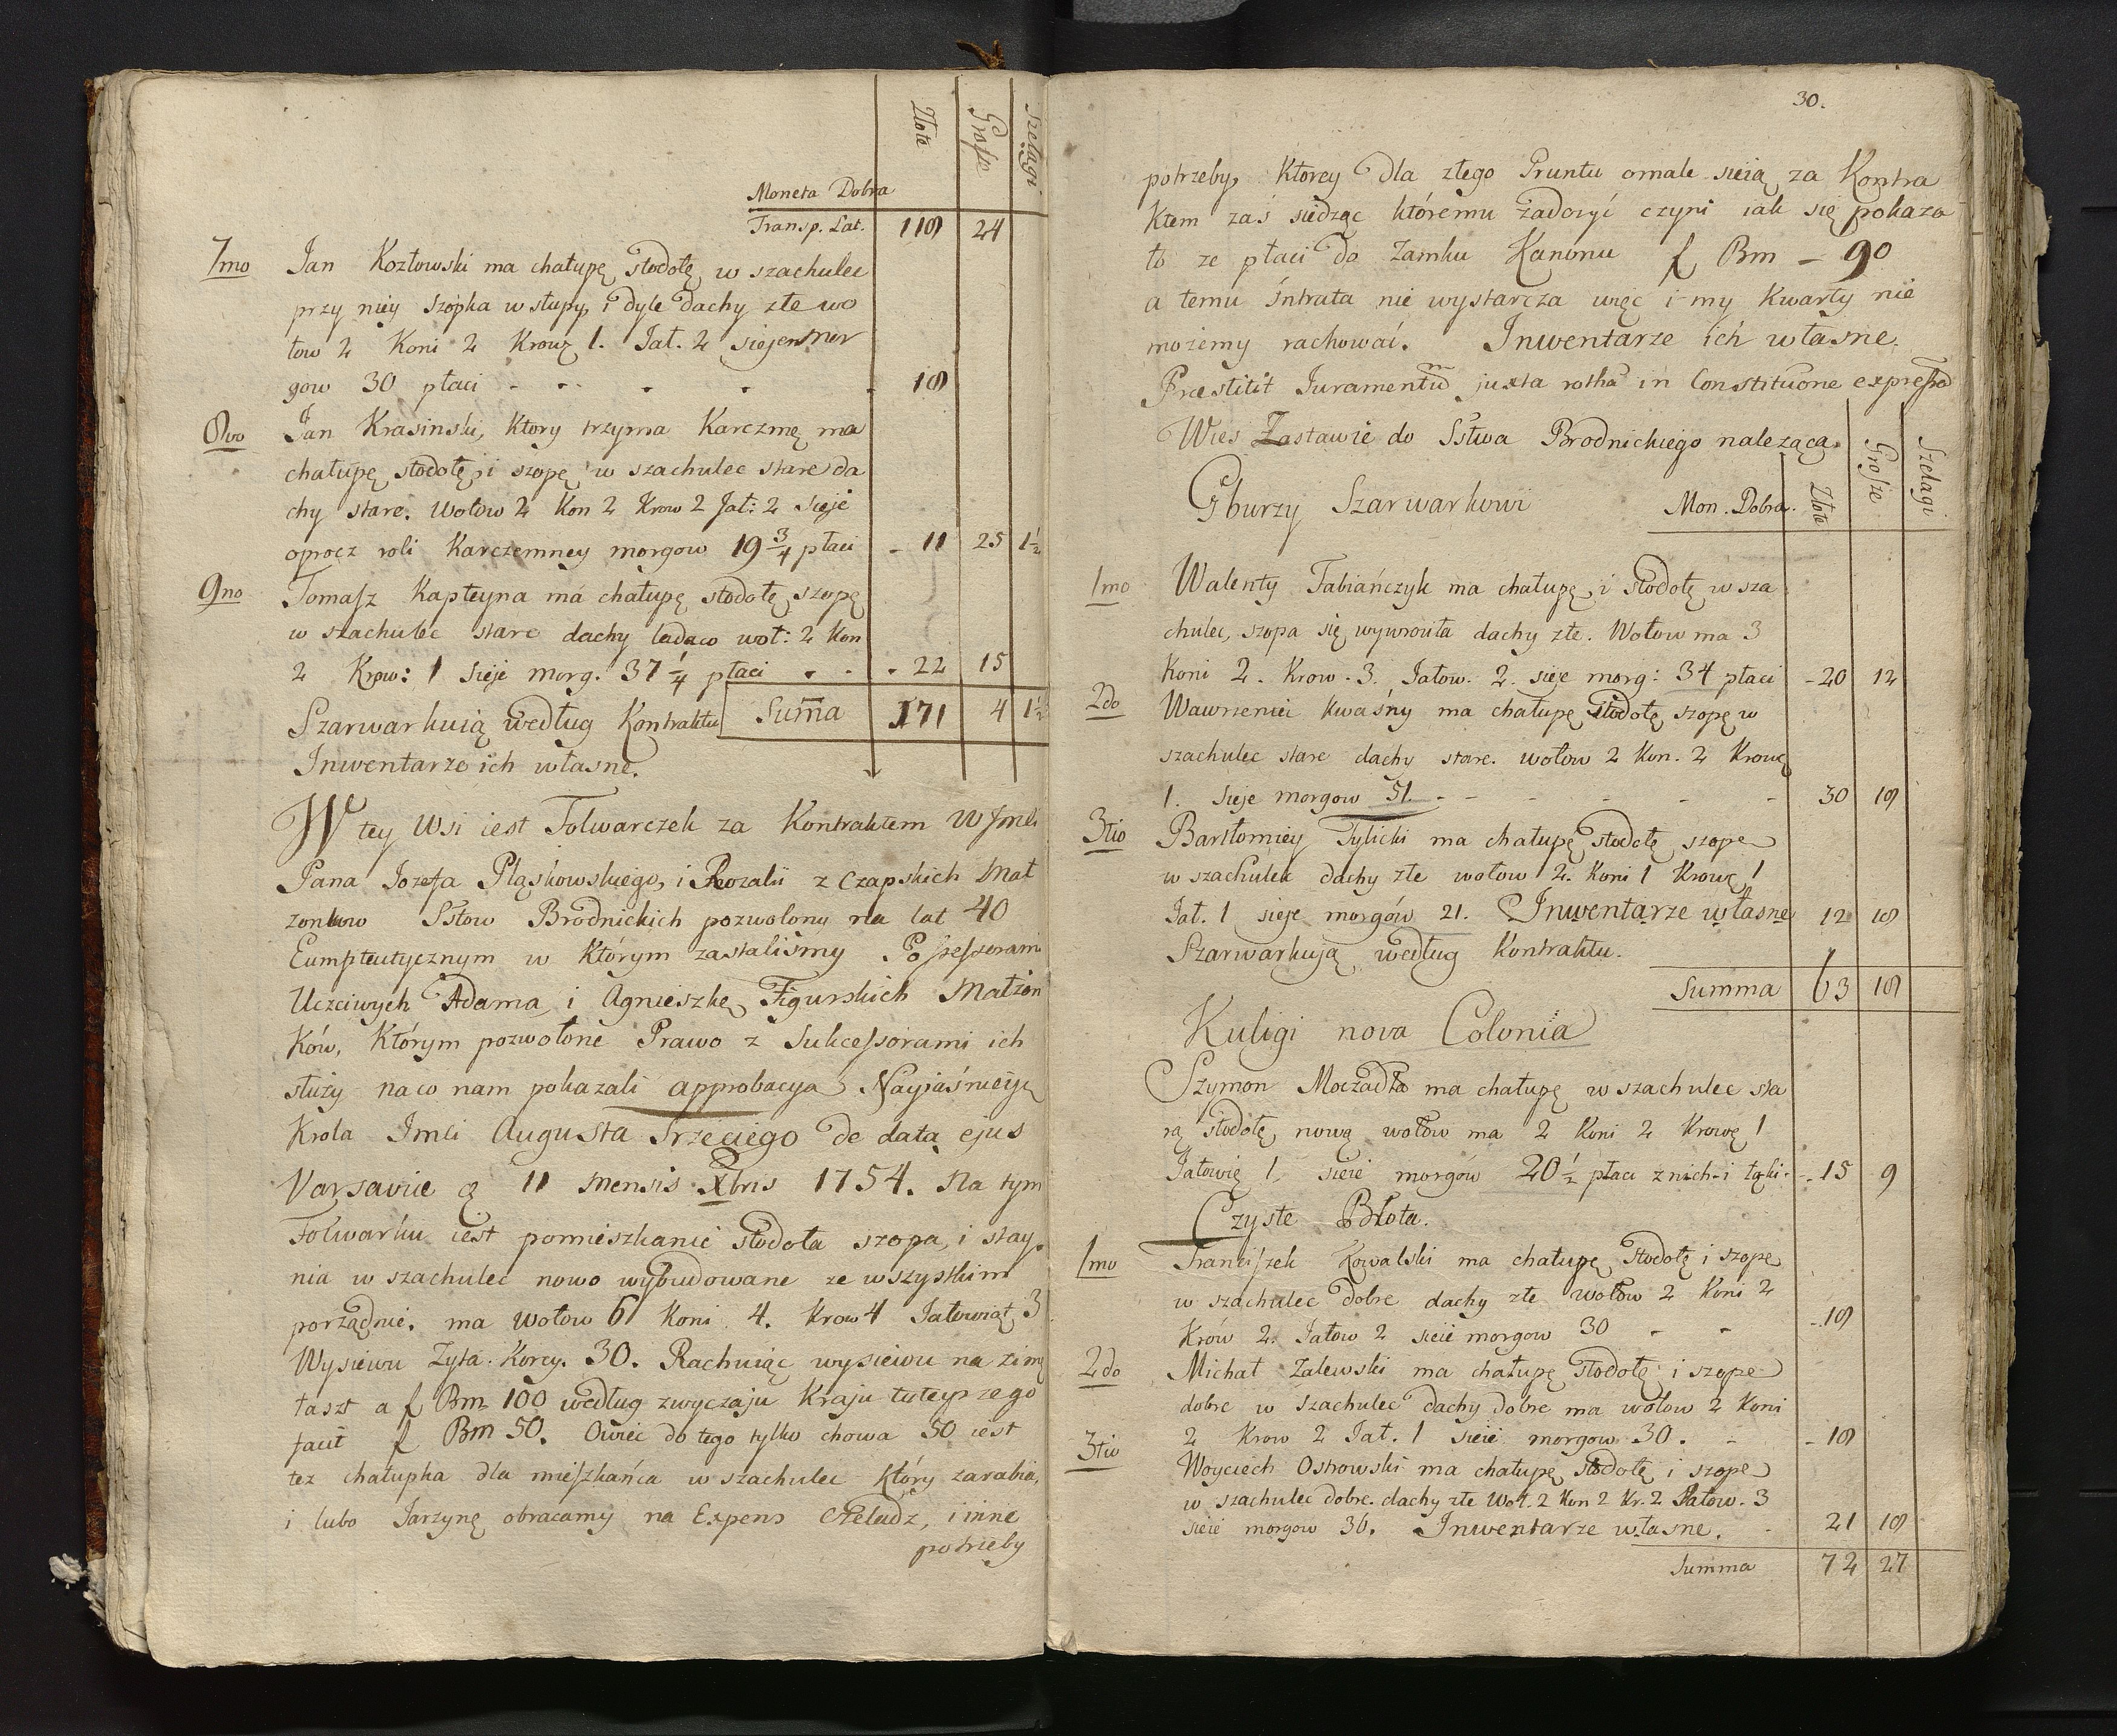 Złote Grosze Szelągi
Moneta Dobra
Transp. Lat. 118 24
7mo Jan Kozłowski ma chałupę stodołę w szachulec
przy niey szopka w słupy i dyle dachy złe wo
łow 2 Koni 2 Krowę 1. Jał. 2 siejе mor
gow 30 płaci - - - - - 18
8vo Jan Krasinski, Ktory trzyma Karczmę ma
chałupę stodołę i szopę w szachulec stare da
chy stare. Wołow 2 Kon 2 Krow 2 Jał: 2 sieje
oprocz roli Karczemney morgow 19 3/4 płaci - 11 25 1 1/2
9no Tomasz Kapteyna má chałupę stodołę szopę
w szachulec stare dachy ladaco woł: 2 Kon
2 Krow: 1 sieje morg. 37 1/4 płaci - - - 22 15
Szarwarkuią według Kontraktu Summa 171 4 1 1/2
Inwentarze ich własne.
W tey Wsi iest Folwarczek za Kontraktem W Jmci
Pana Jozefa Pląskowskiego, i Rozalii z Czapskich Mał
zonkow Sstow Brodnickich pozwolony na lat 40
Eumpteutycznym w Którym zastaliśmy Possessorami
Uczciwych Adama i Agnieszkę Figurskich Małżon
Ków, Którym pozwolone Prawo z Sukcessorami ich
służy na co nam pokazali approbacya Nayjaśnieysz
Krola Jmci Augusta Trzeciego de data ejus
Varsavie 11 Mensis Xbris 1754. Na tym
Folwarku iest pomieszkanie stodoła szopa, i stay.
nia w szachulec nowo wybudowane ze wszystkim
porządnie. ma Wołow 6 Koni 4. Krow 4 Jałowiąt 3
Wysiewu Zyta. Korcy. 30. Rachuiąc wysiewu na zimę
łaszt a f Bm 100 według zwyczaju Kraju tuteyszego
facit f Bm 50. Owiec do tego tylko chowa 50 iest
tez chałupka dla mieszkańca w szachulec Który zarabia,
i lubo Jarzynę obracamy na Expens czeladz, i inne
potrzeby
30.
potrzeby, Ktorey dla złego Gruntu omale sieią za Kontra
Ktem zaś siedząc któremu zadozyć czyni iak się pokaza
ło ze płaci do Zamku Kanonu f Bm - 90
a temu intrata nie wystarcza więc i my Kwarty nie
możemy rachować. Inwentarze ich własne.
Præstitit Juramentũ juxta rotha in Constitucone expressa
Wies Zastawie do Sstwa Brodnickiego nalezącą.
Gburzy Szarwarkowi Mon. Dobra. Złote Grosze Szelągi
1mo Walenty Fabiańczyk ma chałupę i stodołę w sza
chulec, szopa się wywrouła dachy złe. Wołow ma 3
Koni 2. Krow. 3. Jałow. 2. sieje morg: 34 płaci - 20 12
2do Wawrzeniec Kwaśny ma chałupę stodołę szopę w
szachulec stare dachy stare. wołow 2 Kon. 2 Krowę
1. sieje morgow 51. - - - - - - 30 18
3tio Barthomiey Tylicki ma chałupę stodołę szopę
w szachulec dachy złe wołow 2. Koni 1 Krowę 1
Jał. 1 sieje morgów 21. Inwentarze własne 12 18
Szarwarkują według Kontraktu.
Summa 63 18
Kuligi nova Colonia
Szymon Moczadło ma chałupę w szachulec sta
rą stodołę nową wołow ma 2 Koni 2 Krowę 1
Jałowię 1. sieie morgów 20 1/2 płaci z nich i łąki. - 15 9
Czyste Błota.
1mo Franciszek Kowalski ma chałupę stodołę i szopę
w szachulec dobre dachy złe wołow 2 Koni 2
Krów 2. Jałow 2 sieie morgow 30 - - - 18
2do Michał Zalewski ma chałupę stodołę i szopę
dobre w szachulec dachy dobre ma wołow 2 Koni
2 Krow 2 Jał. 1 sieie morgow 30. - - 18
3tio Woyciech Osnowski ma chałupę stodołę i szopę
w szachulec dobre. dachy złe Woł. 2 Kon 2 Kr. 2 Jałow. 3
sieie morgow 36. Inwentarze własne. - 21 18
Summa 72 27